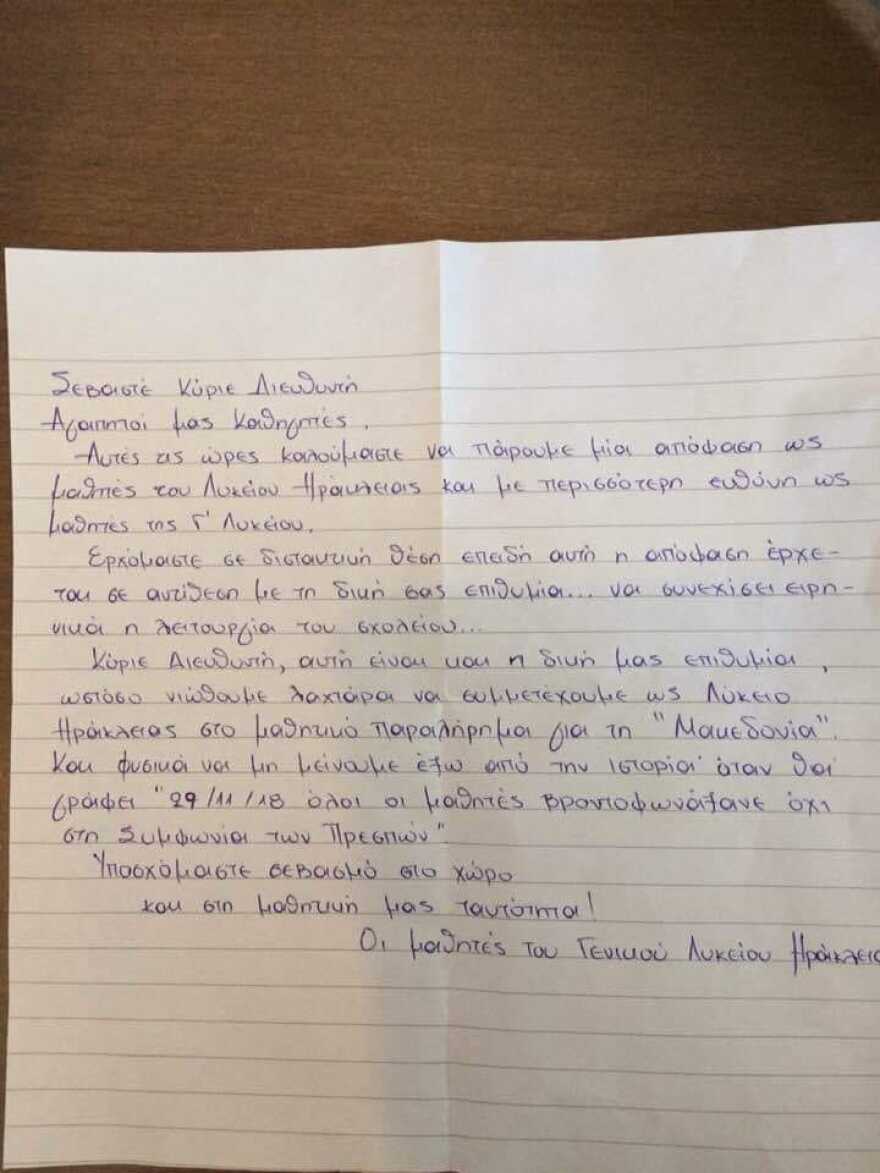 Σεβαστέ Κύριε Διευθυντή
Αγαπητοί μας καθηγητές.
Αυτές τις ώρες καλούμαστε να πάρουμε μία απόφαση ως
μαθητές του Λυκείου Ηράκλειας και με περισσότερη ευθύνη ως
μαθητές της Γ' Λυκείου.
Ερχόμαστε σε δισταντική θέση επειδή αυτή η απόφαση έρχε-
ται σε αντίθεση με τη δική σας επιθυμία... να συνεχίσει ειρη-
νικά η λειτουργία του σχολείου...
Κύριε Διευθυντή, αυτή είναι και η δική μας επιθυμία,
ωστόσο νιώθουμε λαχτάρα να συμμετέχουμε ως Λύκειο
Ηράκλειας στο μαθητικό παραλήρημα για τη "Μακεδονία".
Και φυσικά να μη μείνουμε έξω από την ιστορία όταν θα
γράφει "29/11/18 όλοι οι μαθητές βροντοφωνάξανε όχι
στη Συμφωνία των Πρεσπών"
Υποσχόμαστε σεβασμό στο χώρο
και στη μαθητική μας ταυτότητα!
Οι μαθητές του Γενικού Λυκείου Ηράκλεια